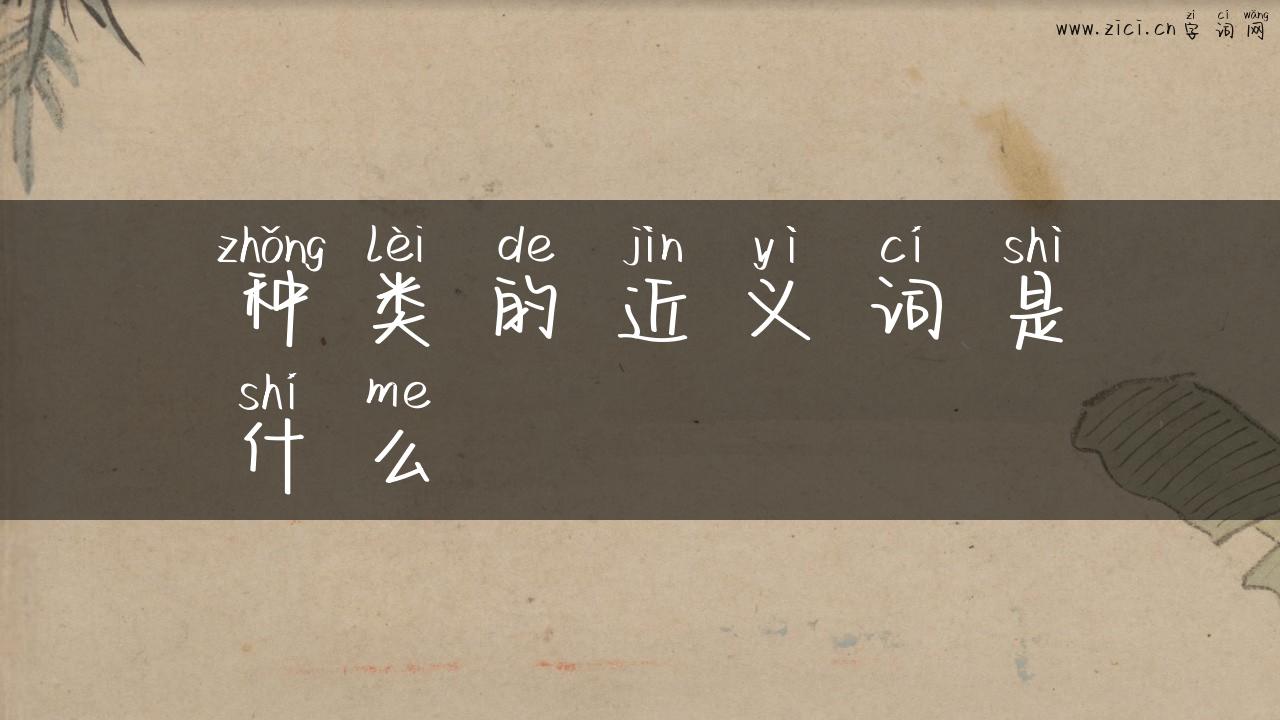 zì cí wǎng
www.zici.cn 字词网
zhǒng lèi de jìn yì cí shì
种类的近义词是
shí me
什么